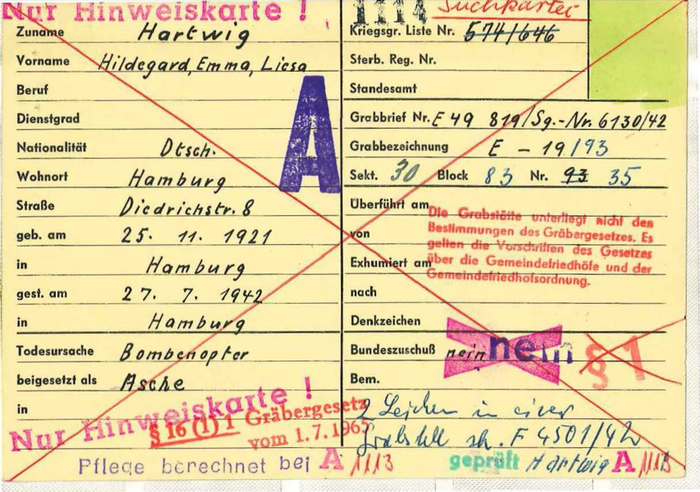 Nur Hinweiskarte !
1114
Suchkartei
Zuname Hartwig
Vorname Hildegard, Emma, Liesa
Beruf
Dienstgrad
Nationalität Dtsch.
Wohnort Hamburg
Straße Diedrichstr. 8
geb. am 25. 11. 1921
in Hamburg
gest. am 27. 7. 1942
in Hamburg
Todesursache Bombenopfer
beigesetzt als Asche
in
A
Nur Hinweiskarte !
§ 16 (1) 1 Gräbergesetz
vom 1.7.1965
Pflege berechnet bei A 1113
Kriegsgr. Liste Nr. 574/646
Sterb. Reg. Nr.
Standesamt
Grabbrief Nr. E 49 819/Sg.-Nr. 6130/42
Grabbezeichnung E - 19/93
Sekt. 30 Block 83 Nr. 93 35
Überführt am
von
Exhumiert am
nach
Die Grabstätte unterliegt nicht den
Bestimmungen des Gräbergesetzes. Es
gelten die Vorschriften des Gesetzes
über die Gemeindefriedhöfe und der
Gemeindefriedhofsordnung.
Denkzeichen
Bundeszuschuß nein nein § 1
Bem.
2 Leichen in einer
Grabstelle sh. F 4501/42
geprüft Hartwig A 1113